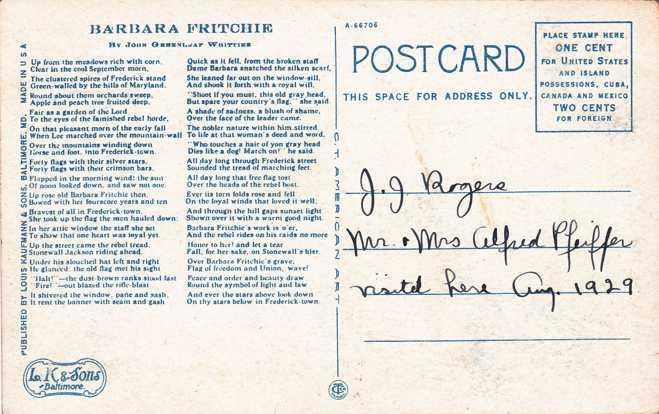 BARBARA FRITCHIE
BY JOHN GREENLEAF WHITTIER
Up from the meadows rich with corn,
Clear in the cool September morn,
The clustered spires of Frederick stand
Green-walled by the hills of Maryland.
Round about them orchards sweep,
Apple and peach tree fruited deep,
Fair as a garden of the Lord
To the eyes of the famished rebel horde,
On that pleasant morn of the early fall
When Lee marched over the mountain-wall
Over the mountains winding down
Horse and foot, into Frederick-town.
Forty flags with their silver stars,
Forty flags with their crimson bars,
Flapped in the morning wind: the sun
Of noon looked down, and saw not one.
Up rose old Barbara Fritchie then,
Bowed with her fourscore years and ten
Bravest of all in Frederick-town,
She took up the flag the men hauled down:
In her attic window the staff she set
To show that one heart was loyal yet.
Up the street came the rebel tread,
Stonewall Jackson riding ahead.
Under his slouched hat left and right
He glanced: the old flag met his sight
"Halt!"—the dust-brown ranks stood fast
"Fire!"—out blazed the rifle-blast
It shivered the window, pane and sash,
It rent the banner with seam and gash
Quick as it fell, from the broken staff
Dame Barbara snatched the silken scarf,
She leaned far out on the window-sill,
And shook it forth with a royal will,
"Shoot if you must, this old gray head,
But spare your country's flag," she said.
A shade of sadness, a blush of shame,
Over the face of the leader came.
The nobler nature within him stirred
To life at that woman's deed and word.
"Who touches a hair of yon gray head
Dies like a dog! March on!" he said.
All day long through Frederick street
Sounded the tread of marching feet.
All day long that free flag tost
Over the heads of the rebel host.
Ever its torn folds rose and fell
On the loyal winds that loved it well;
And through the hill gaps sunset light
Shown over it with a warm good night.
Barbara Fritchie's work is o'er,
And the rebel rides on his raids no more
Honor to her! and let a tear
Fall, for her sake, on Stonewall's bier.
Over Barbara Fritchie's grave,
Flag of freedom and Union, wave!
Peace and order and beauty draw
Round thy symbol of light and law
And ever the stars above look down
On thy stars below in Frederick-town.
PUBLISHED BY LOUIS KAUFMANN & SONS, BALTIMORE, MD. MADE IN U S A
L. K & Sons
Baltimore.
A-66706
POST CARD
THIS SPACE FOR ADDRESS ONLY.
PLACE STAMP HERE
ONE CENT
FOR UNITED STATES
AND ISLAND
POSSESSIONS, CUBA,
CANADA AND MEXICO
TWO CENTS
FOR FOREIGN
J. J Rogers
Mr. & Mrs Alfred Pfeiffer
visited here Aug. 1929